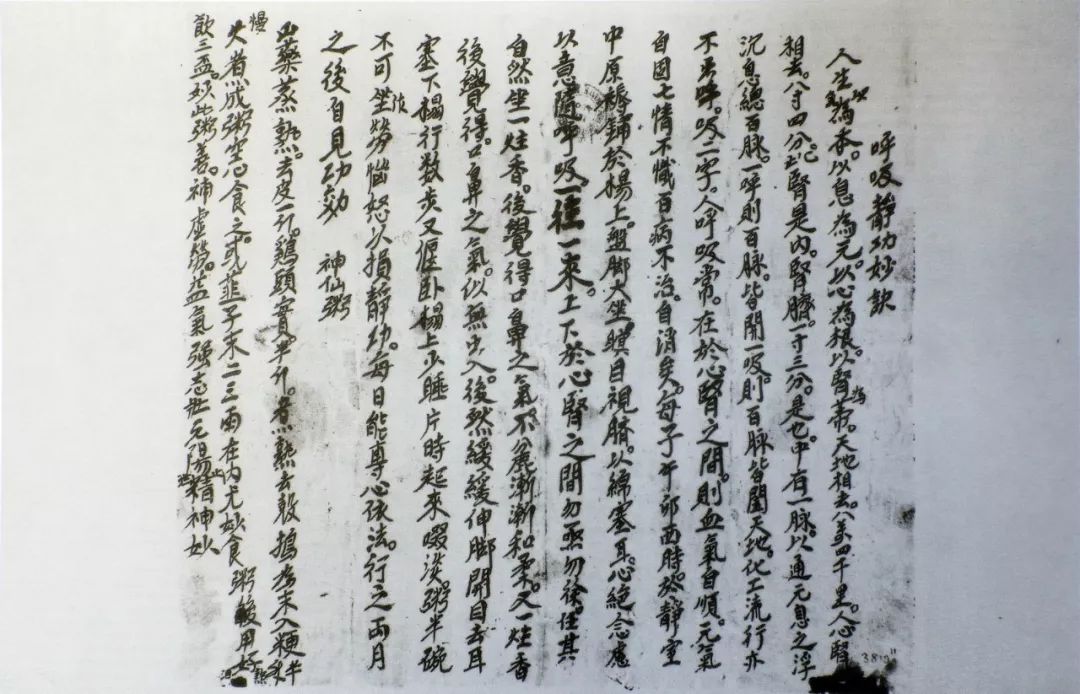 呼吸靜功妙訣
人生以氣為本以息為元以心為根以腎為蒂天地相去八萬四千里人心腎
相去八寸四分此腎是內腎臍一寸三分是也中有一脉以通元息之浮
沉息總百脉一呼則百脉皆開一吸則百脉皆闔天地化工流行亦
不出呼吸二字人呼吸常在於心腎之間則血氣自順元氣
自固七情不熾百病不治自消矣每子午卯酉時於靜室
中厚褥鋪於榻上盤脚大坐瞑目視臍以綿塞耳心絕念慮
以意隨呼吸一往一來上下於心腎之間勿亟勿徐任其
自然坐一炷香後覺得口鼻之氣不麄漸漸和柔又一炷香
後覺得口鼻之氣似無出入後然緩緩伸脚開目去耳
塞下榻行数步又偃卧榻上少睡片時起來啜淡粥半碗
不可作勞惱怒以損靜功每日能專心依法行之兩月
之後自見功効 神仙粥
山藥蒸熟去皮一斤鷄頭實半斤煮熟去殼搗為末入粳半升
慢火煮成粥空心食之或韭子末二三兩在內尤妙食粥後用好熱酒
飲三盃妙此粥善補虛勞益氣強志壯元陽精神妙